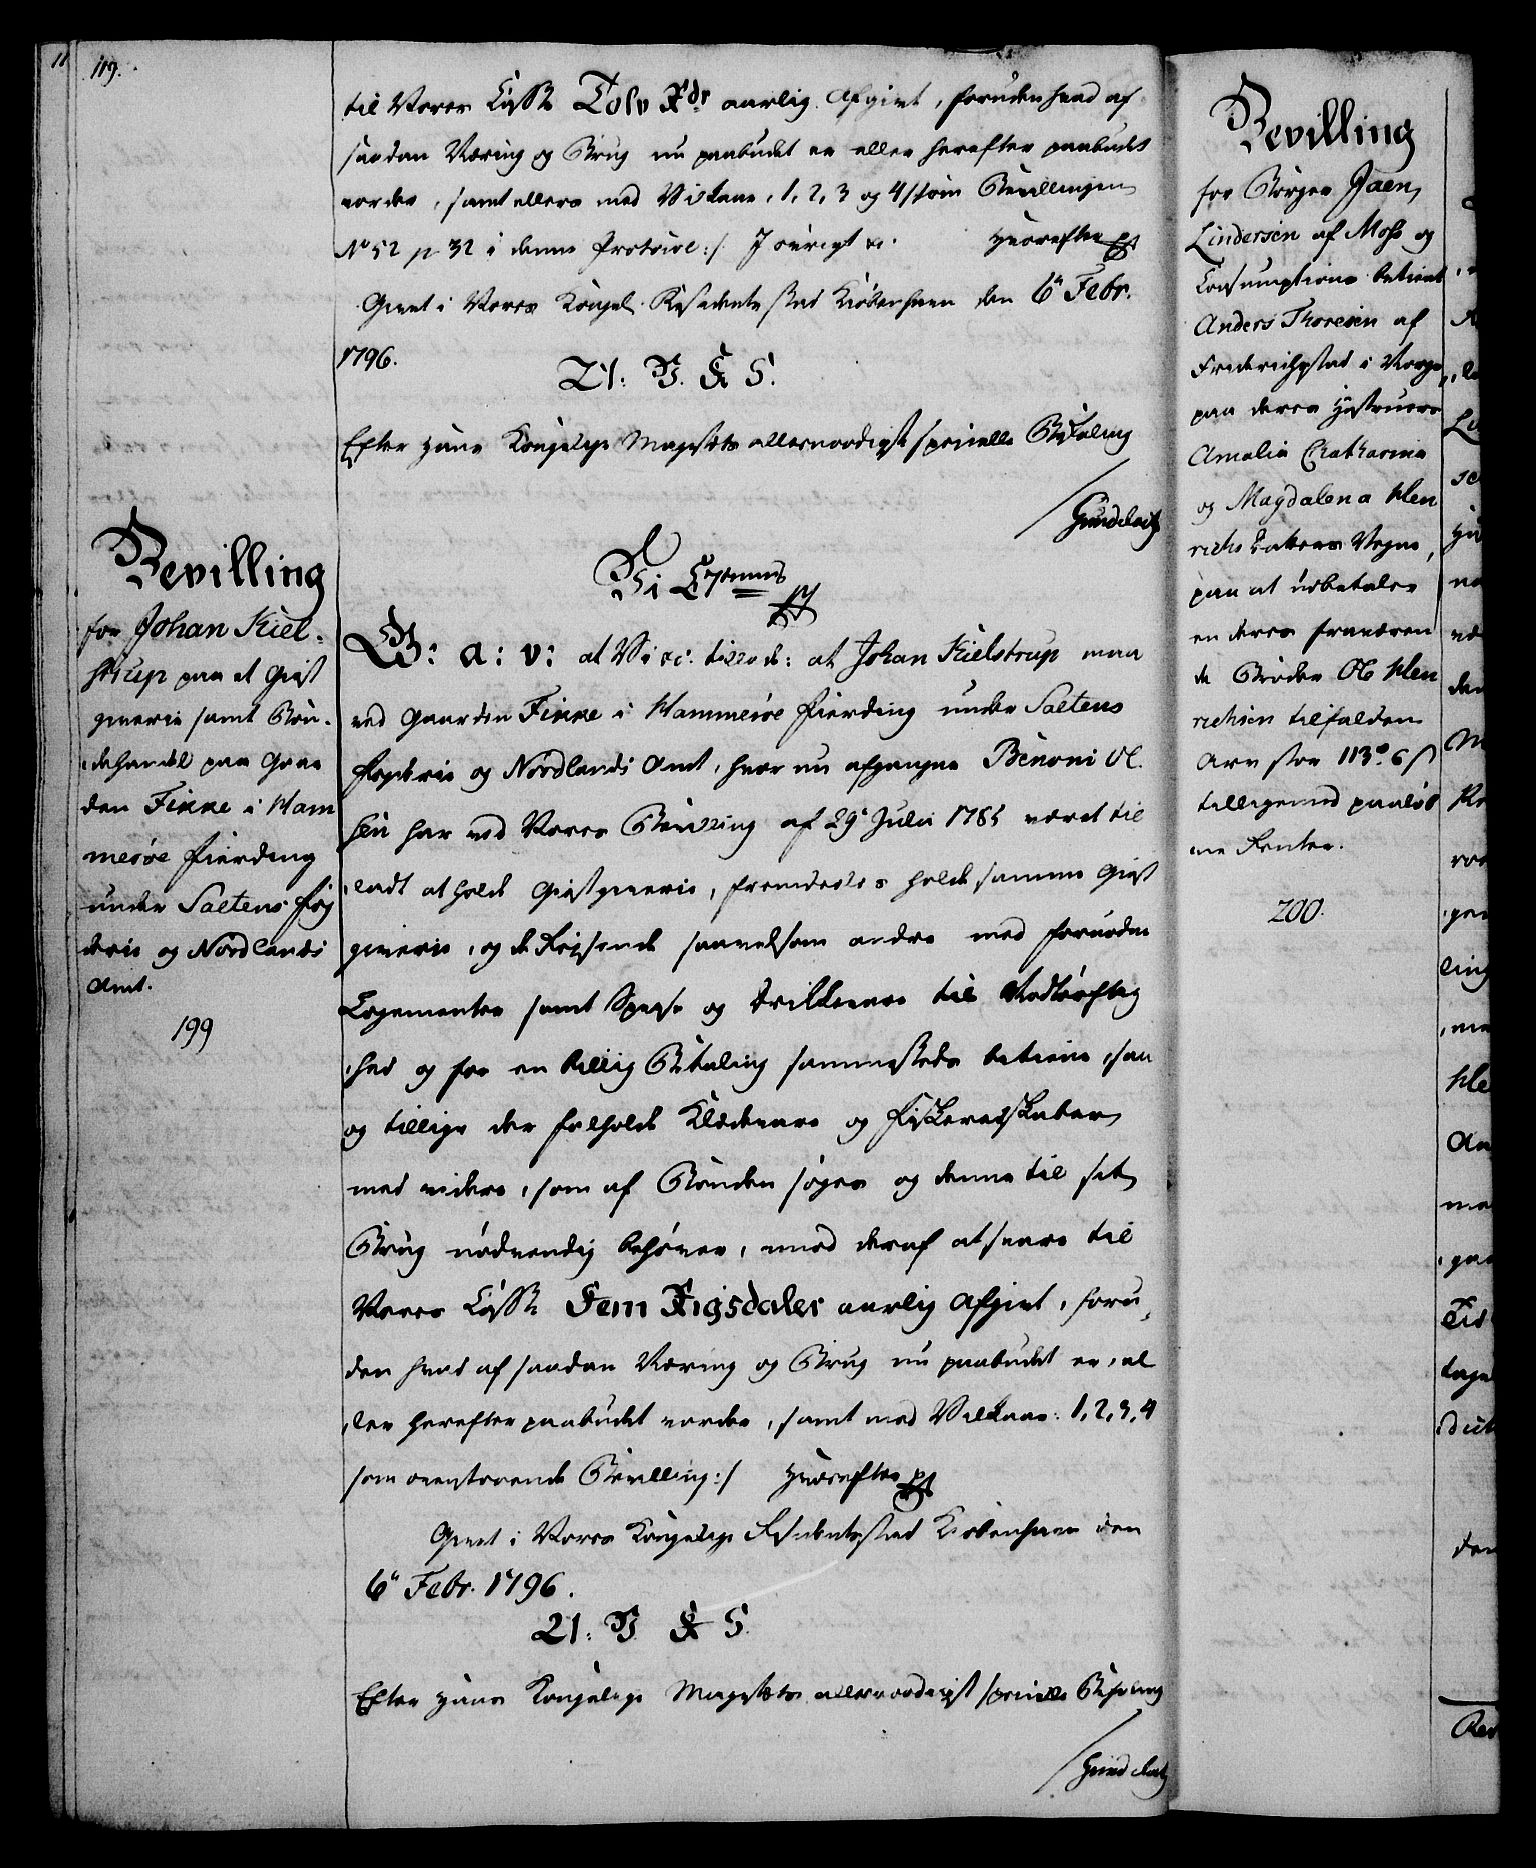 119.
til Vores Casse Tolv Rdr aarlig Afgivt, foruden hvad af
saadan Næring og Brug nu paabudet er eller herefter paabudet
vorder, samt ellers med Vilkaar, 1, 2, 3 og 4 /: som Bevillingen
No 52 p 32 i denne Protocol :/ I øvrigt &c. Hvorefter
Givet i Vores Kongel. Residents stad Kiøbenhavn den 6te Febr.
1796.
21:
Efter Hans Kongelige Majestæts allernaadigst specielle Befaling
Bevilling
for Johan Kiel-
strup paa at Giæst
giverie samt Bøn-
dehandel paa Gaar
den Finne i Ham
merøe Fierding
under Saltens Fog
derie og Nordlands
Amt.
199
Vi C 7mus
G: a: v: at Vi &c. tillade: at Johan Kielstrup maa
ved Gaarden Finne i Hammerøe Fierding under Saltens
Fogderie og Nordlands Amt, hvor nu afgangne Benoni Ol-
sen har ved Vores Bevilling af 29de Julii 1785 været til
ladt at holde Giæstgiverie, fremdeles holde samme Giæst
giverie, og de Reisende saavelsom andre med fornøden
Logementer samt Spise og Drikkevare til Nødtørftig
hed og for en billig Betaling sammesteds betiene, saa
og tillige der falholde Klædevare og Fiskeredskaber
med videre, som af Bønden søges og denne til sit
Brug nødvendig behøver, imod deraf at svare til
Vores Casse Fem Rigsdaler aarlig Afgivt, foru-
den hvad af saadan Næring og Brug nu paabudet er, el
ler herefter paabudet vorder, samt med Vilkaar: 1, 2, 3, 4
som ovenstaaende Bevilling :/ Hvorefter
Givet i Vores Kongelige Residentsstad Kiøbenhavn den
6te Febr. 1796.
21:
Efter Hans Kongelige Majestæts allernaadigst specielle Befaling
Bevilling
for Borger
Lindersen af Moss og
Consumptions betient
Anders Thoresen af
Friderichstad i Norge,
paa deres Hustruers
Amalia Chatharina
og Magdalena Hen
richs Døttres Vegne,
paa at udbetales
en deres fraværen
de Broder Ole Hen
richsen tilfalden
Arv stor 113 rd 6 s
tilligemed paaløb
ne Renter.
200.